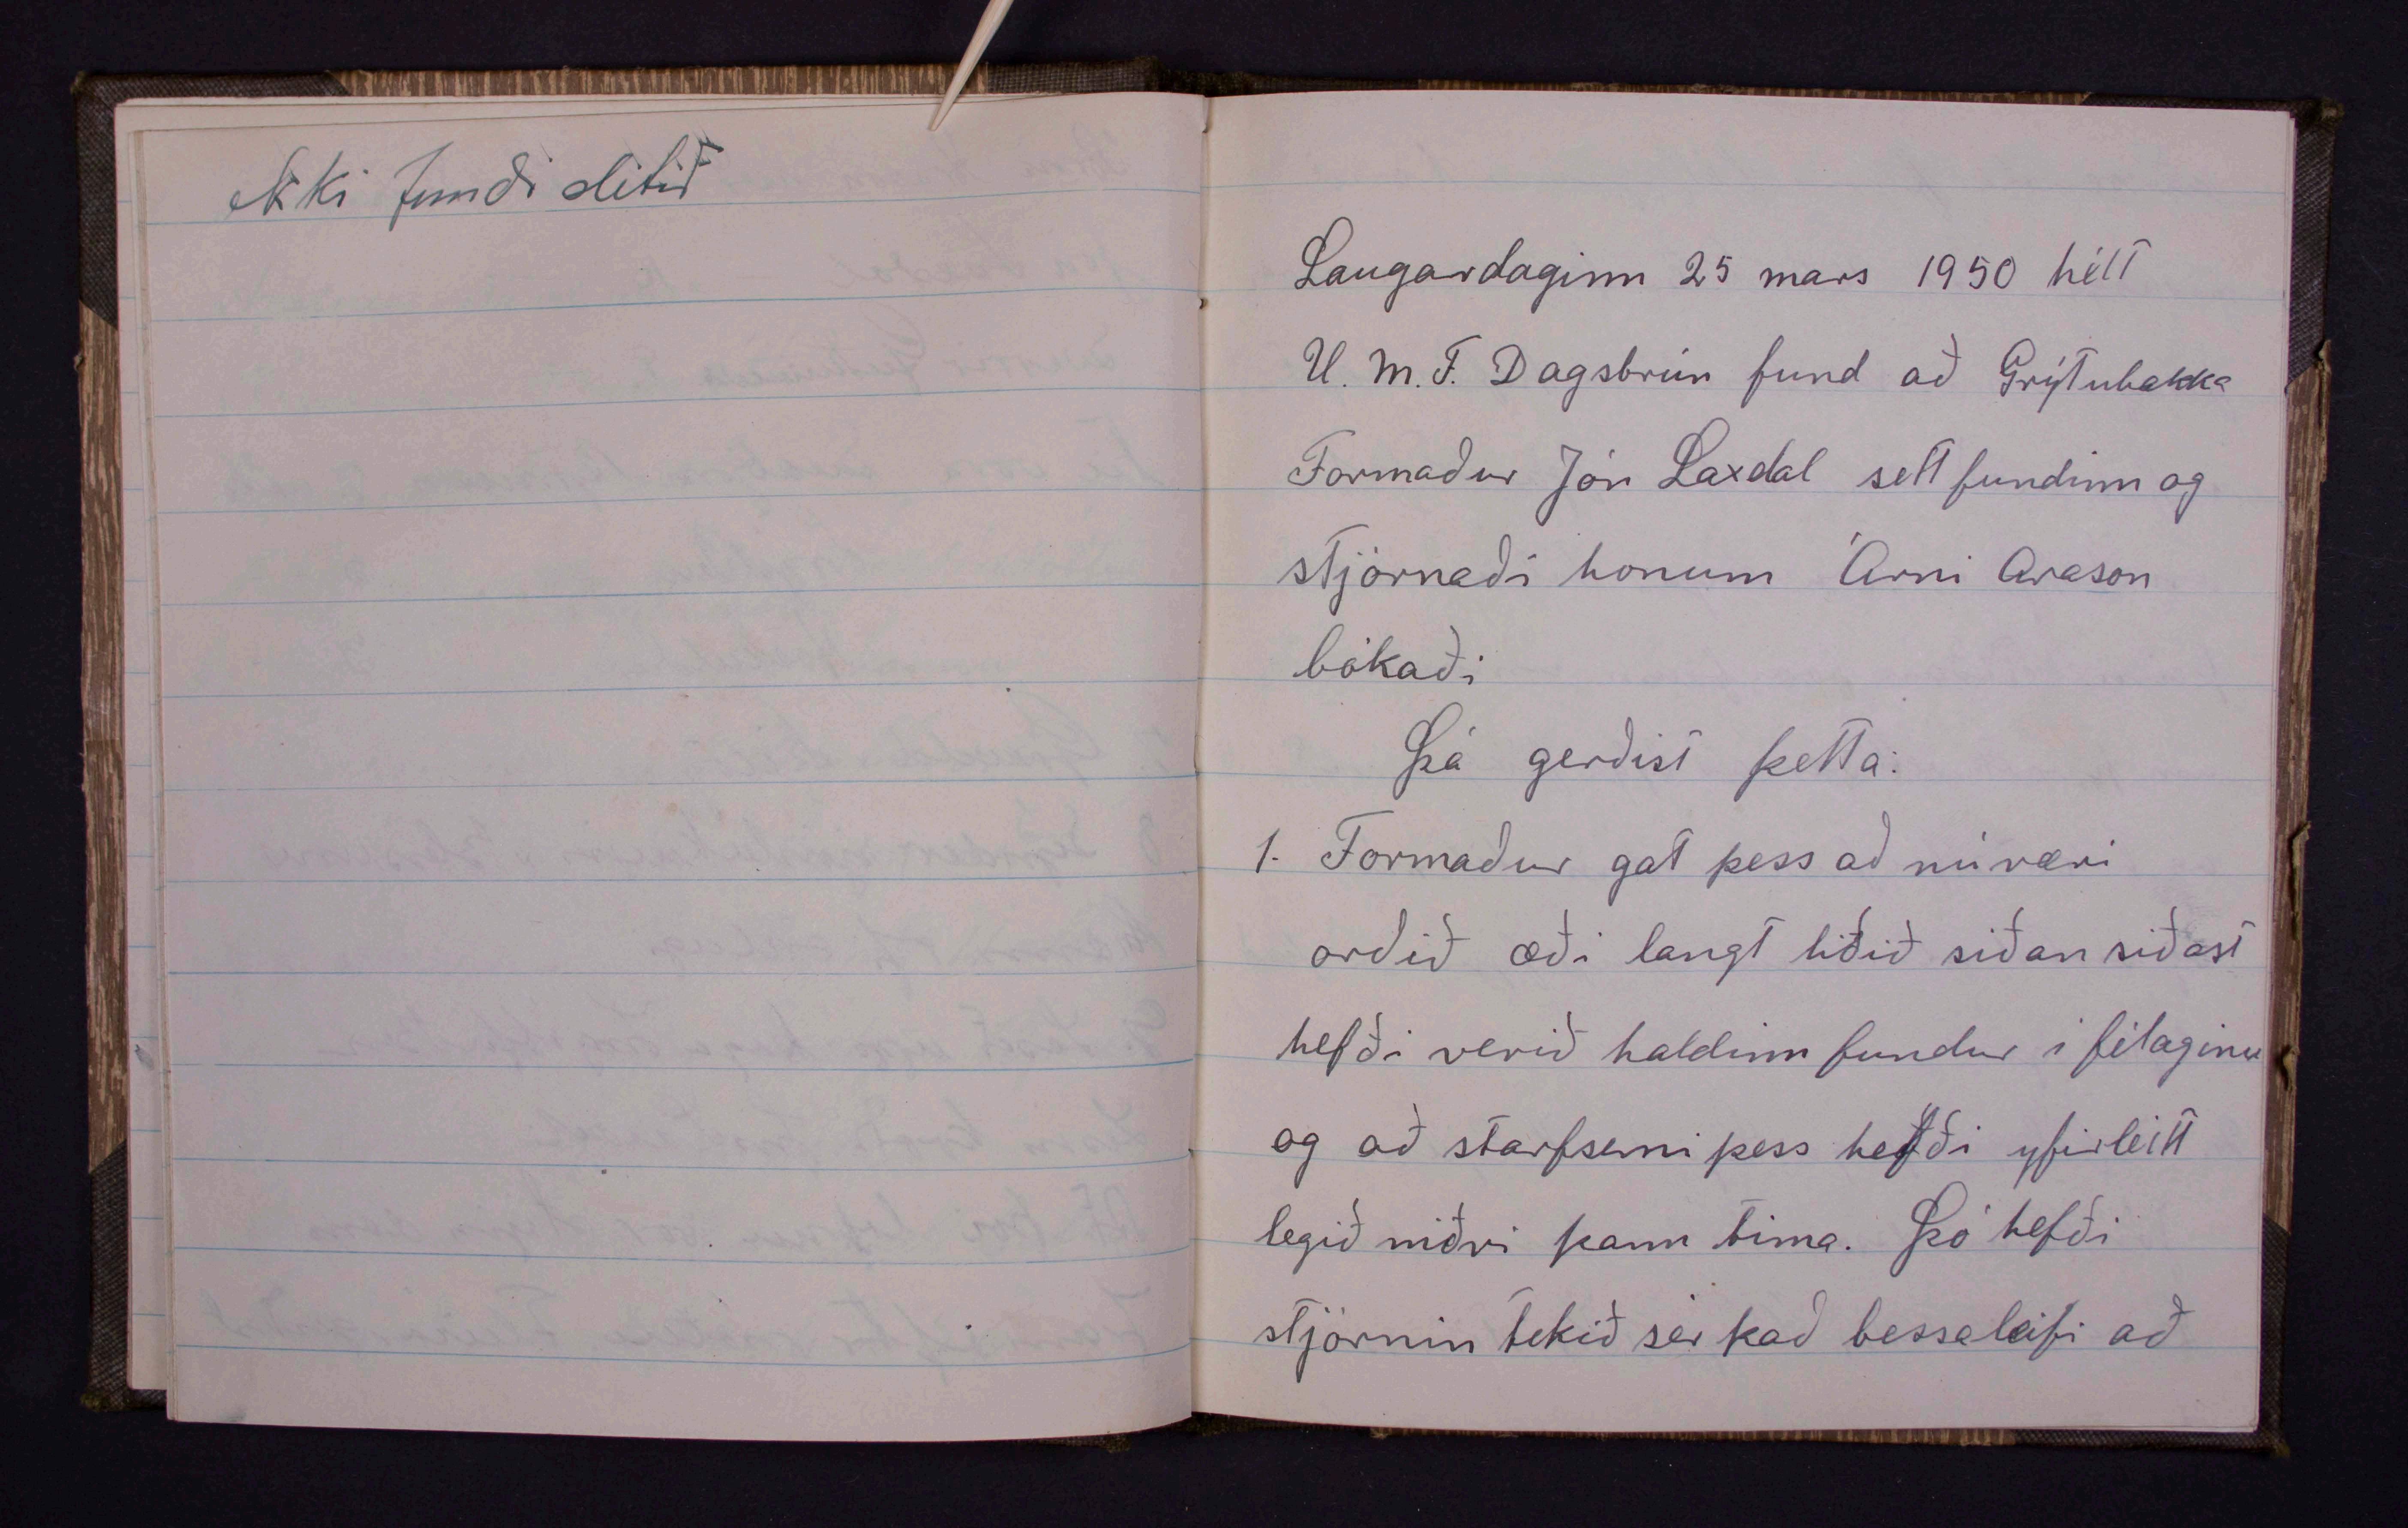 ekki fundi slitið
Laugardaginn 25 mars 1950 hélt
U. M. F. Dagsbrún fund að Grýtubakka
Formaður Jón Laxdal sett fundinn og
stjórnaði honum Árni Arason
bókaði
Þá gerðist þetta:
1. Formaður gat þess að nú væri
orðið æði langt liðið síðan síðast
hefði verið haldinn fundur í félaginu
og að starfsemi þess hefði yfirleitt
legið niðri þann tíma. Þó hefði
stjórnin tekið sér það bessaleifi að